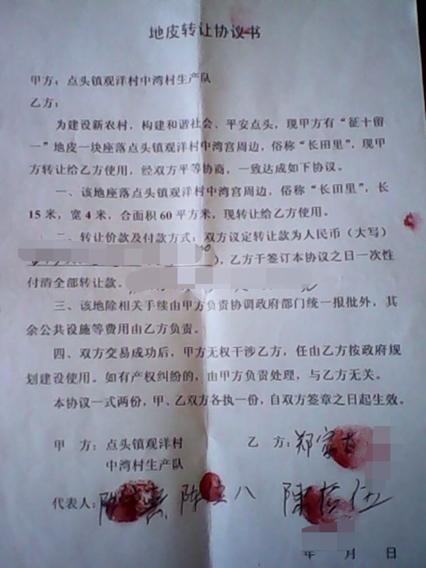 地皮转让协议书
甲方：点头镇观洋村中湾村生产队
乙方：
为建设新农村，构建和谐社会、平安点头，现甲方有“征十留
一”地皮一块座落点头镇观洋村中湾宫周边，俗称“长田里”，现甲
方转让给乙方使用，经双方平等协商，一致达成如下协议。
一、该地座落点头镇观洋村中湾宫周边，俗称“长田里”，长
15米，宽4米，合面积60平方米，现转让给乙方使用。
二、转让价款及付款方式：双方议定转让款为人民币（大写）
），乙方于签订本协议之日一次性
付清全部转让款。
三、该地除相关手续由甲方负责协调政府部门统一报批外，其
余公共设施等费用由乙方负责。
四、双方交易成功后，甲方无权干涉乙方，任由乙方按政府规
划建设使用。如有产权纠纷的，由甲方负责处理，与乙方无关。
本协议一式两份，甲、乙双方各执一份，自双方签章之日起生效。
甲 方：点头镇观洋村 乙 方：郑
中湾村生产队
代表人：陈 陈 八 陳
年 月 日